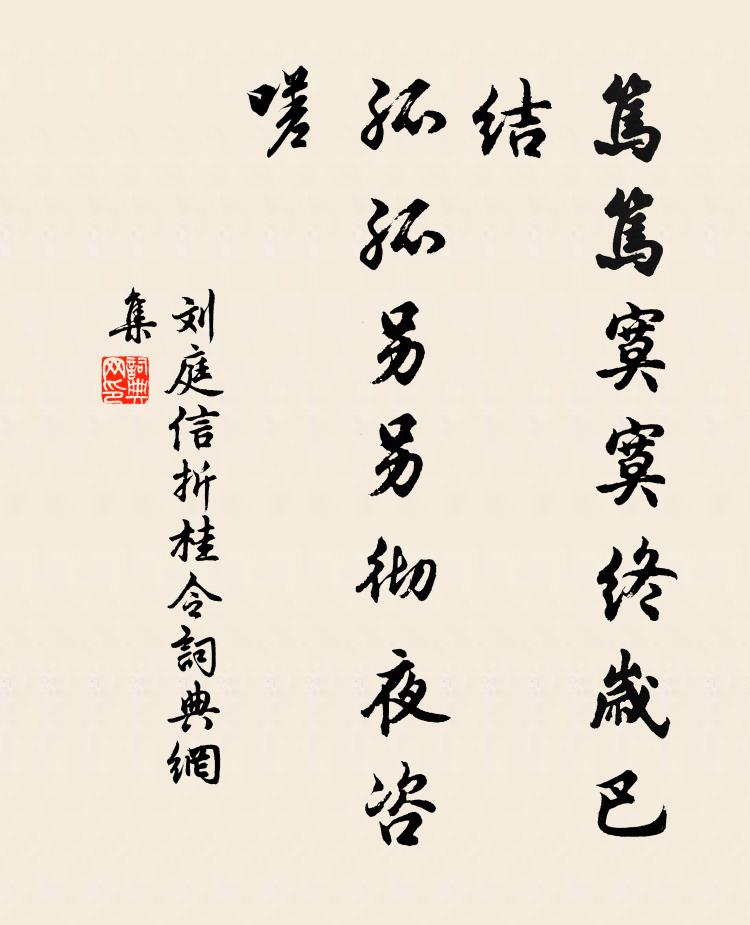 篤篤寞寞終歲巴
結
孤孤另另彻夜咨
嗟
刘庭信折桂令詞典網
集
詞典
网印